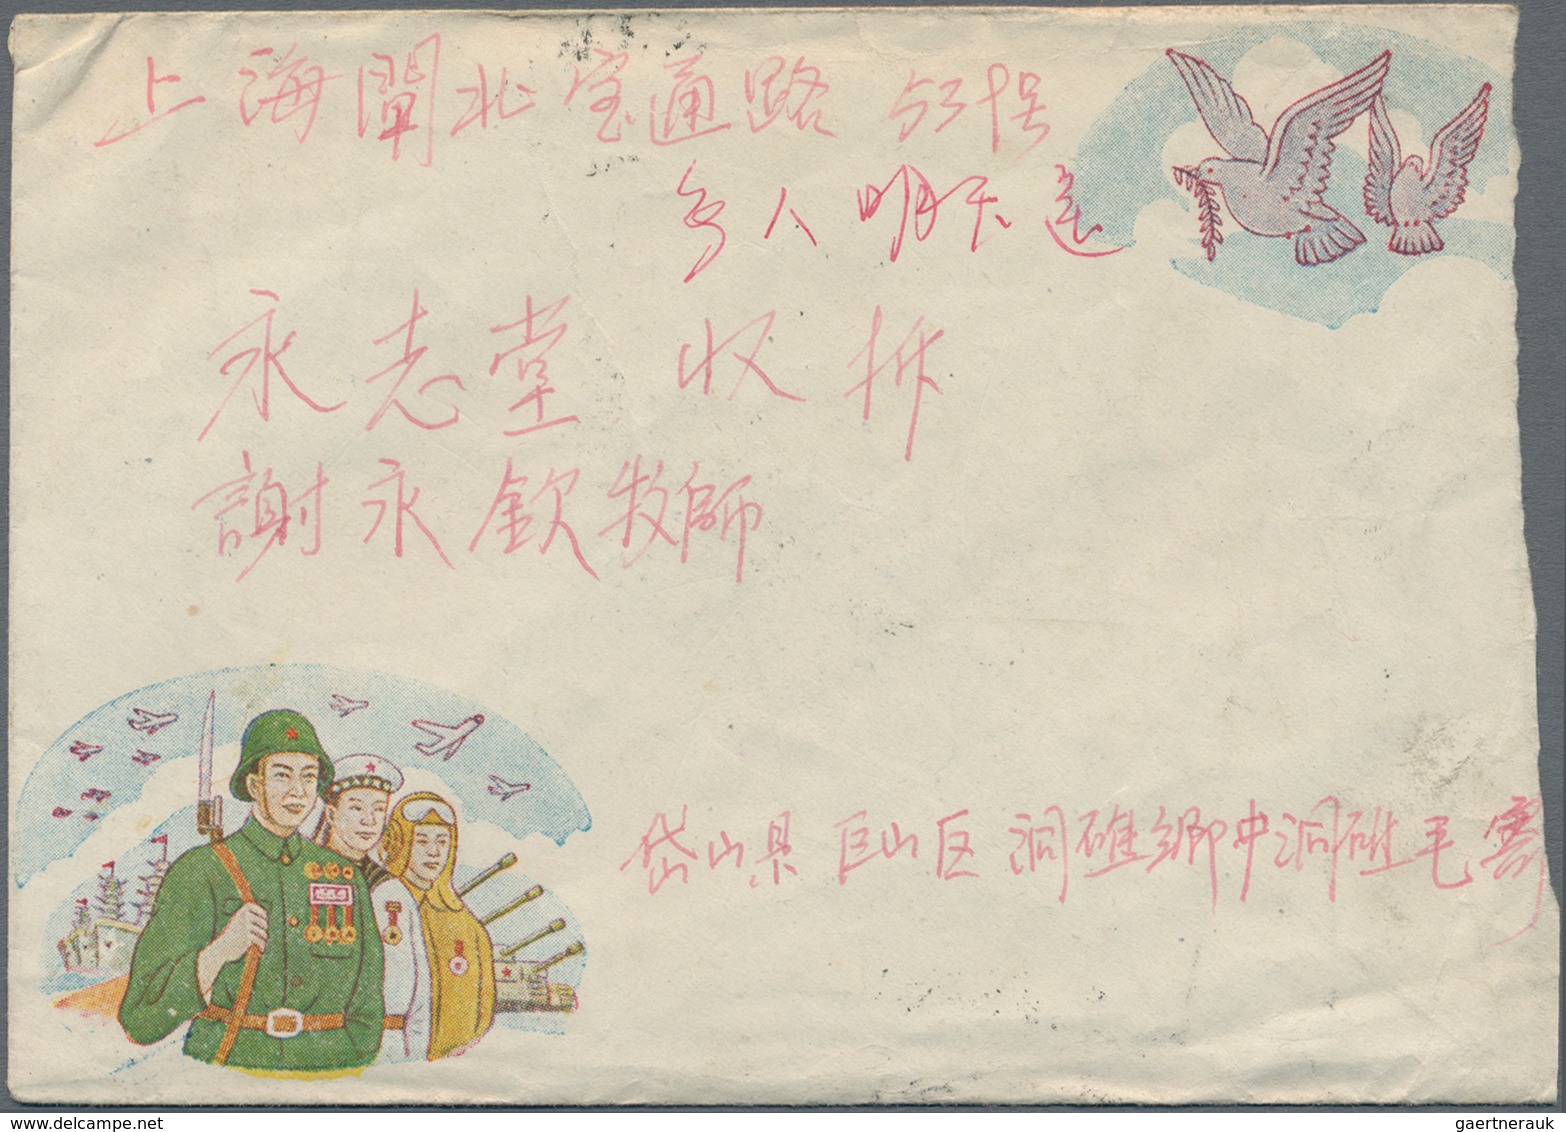 上海闸北宝通路 53号
多人明天送
永志堂 收拆
謝永欽牧師
岱山县 巨山区 洞礁鄉中洞礁毛寄
gaertnerauk @ delcampe.net